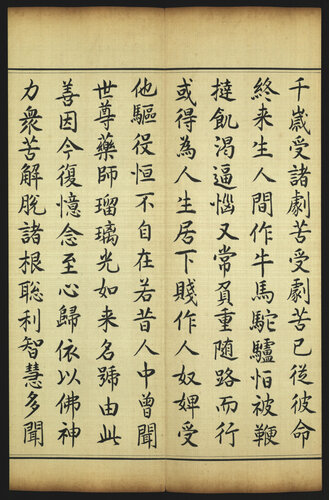 千歲受諸劇苦受劇苦已從彼命
終来生人間作牛馬駝驢怕被鞭
撻飢渴逼惱又常負重随路而行
或得為人生居下賤作人奴婢受
他驅役恒不自在若昔人中曾聞
世尊藥師瑠璃光如来名號由此
善因今復憶念至心歸依以佛神
力衆苦解脫諸根聡利智慧多聞